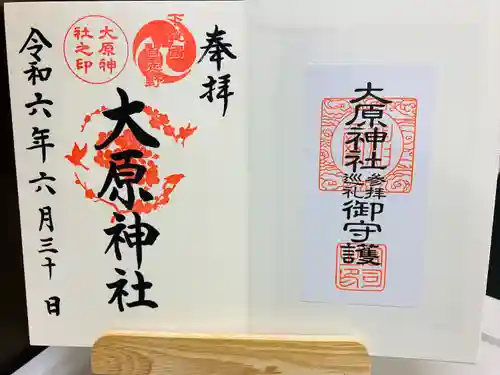 奉拝
大原神社
令和六年六月三十日
大原神
社之印
下総國
大原神社
参拝
巡礼
御守護